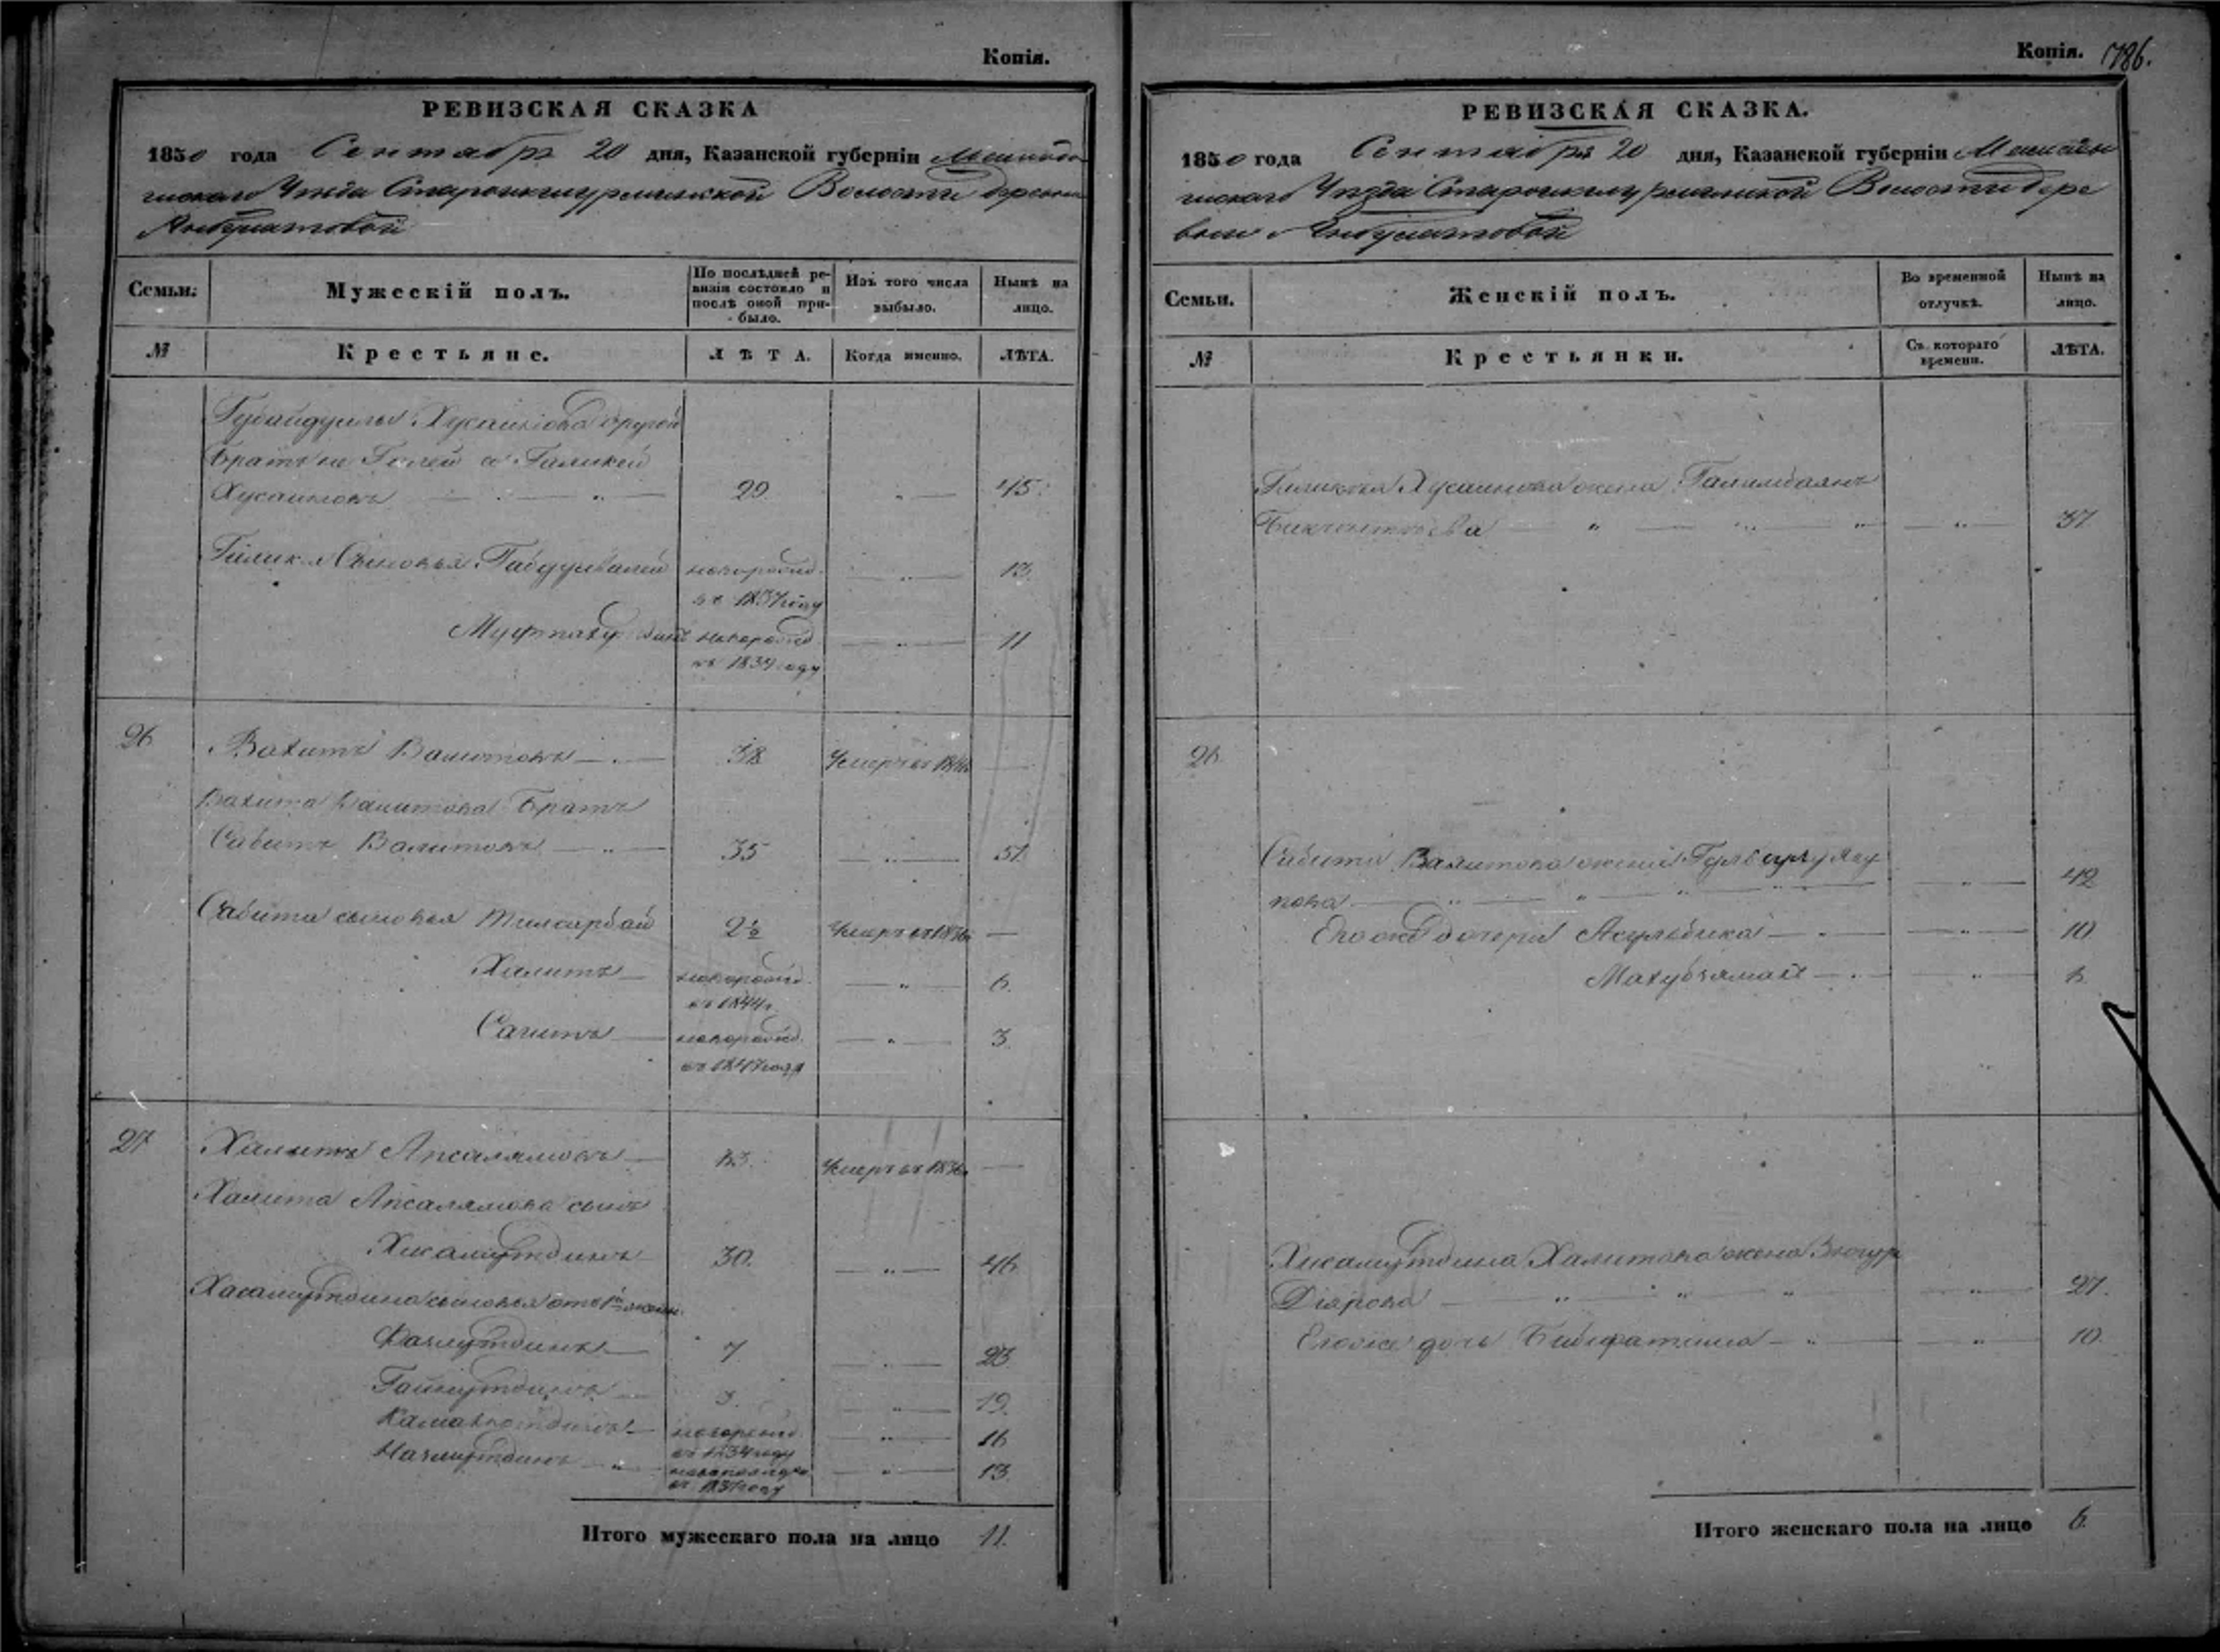 Копія.
РЕВИЗСКАЯ СКАЗКА
1850 года Сентября 20 дня, Казанской губерніи Мамады
шскаго Уѣзда Волости деревни
Янбулатовой
Семьи. Мужескій полъ. По послѣдней ре-
визіи состояло и
послѣ оной при-
было. Изъ того числа
выбыло. Нынѣ на
лицо.
№ Крестьяне. ЛѢТА. Когда именно. ЛѢТА.
Губайдуллы Хусаинова другой
Братъ Галикей
Хусаиновъ — „ — 29 — „ — 45.
Галикея Сыновья Габдулвалей новорожд. — „ — 13.
въ 1837 году
новорожд — „ — 11
въ 1839 году
26 Вахитъ Валитовъ — 38 Умеръ въ —
Вахита Валитова Братъ
Сабитъ Валитовъ — „ — 35 — „ — 51
Сабита сыновья 2½ Умеръ въ —
Халитъ — новорожд. — „ — 6.
въ 1844 г.
Сагитъ — новорожд. — „ — 3.
въ 1847 году
27 Халитъ Апсалямовъ — 63. Умеръ въ —
Халита Апсалямова сынъ
Хисамутдинъ — 30. — „ — 46
Хисамутдина сыновья отъ 1й жены.
Фахлутдинъ — 7. — „ — 23
Гайнутдинъ — 3. — „ — 19.
Камалетдинъ — новорожд — „ — 16
въ 1834 году
Нажмутдинъ — „ — — „ — 13.
въ 1837 году
Итого мужескаго пола на лицо 11.
Копія. 786.
РЕВИЗСКАЯ СКАЗКА.
1850 года Сентября 20 дня, Казанской губерніи Мамады
шскаго Уѣзда Волости дере
вни Янбулатовой
Семьи. Женскій полъ. Во временной
отлучкѣ. Нынѣ на
лицо.
№ Крестьянки. Съ котораго
времени. ЛѢТА.
Галикея Хусаинова жена
— „ — „ — „ — „ — 37
26.
Сабита Валитова жена Ягу
пова — „ — „ — „ — „ — 42
Его же дочери Акульбика — „ — — „ — 10
— „ — „ — 6.
Хисамутдина Халитова жена
— „ — „ — „ — „ — 27.
Его же дочь Бибифатима — „ — — „ — 10.
Итого женскаго пола на лицо 6.